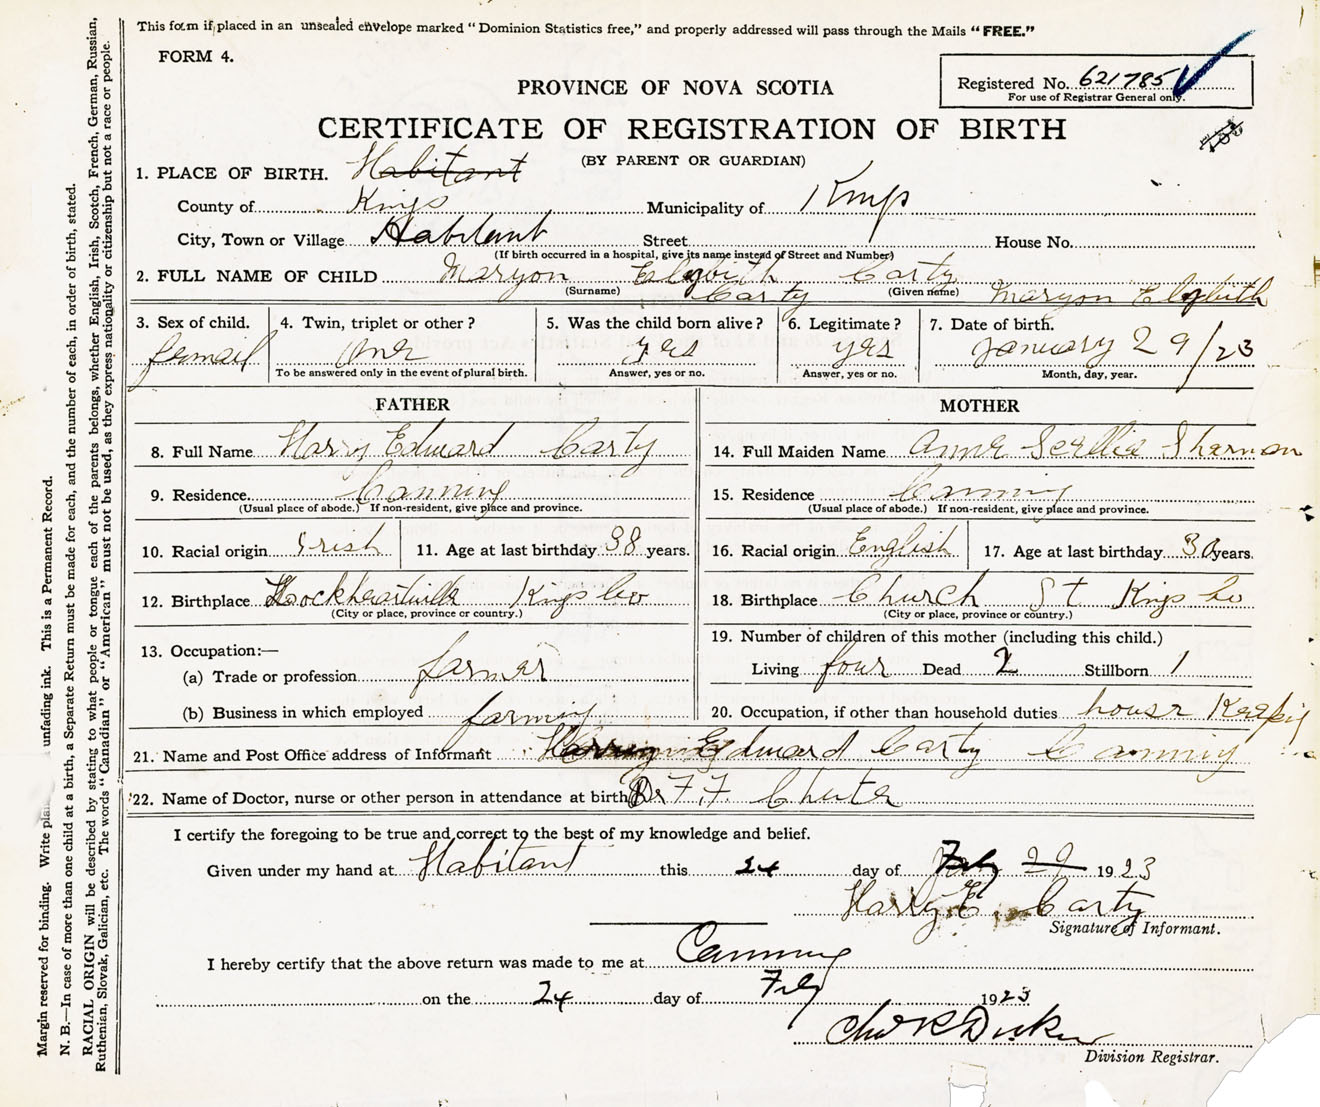 This form if placed in an unsealed envelope marked "Dominion Statistics free," and properly addressed will pass through the Mails "FREE."
FORM 4.
Registered No. 621785
For use of Registrar General only.
PROVINCE OF NOVA SCOTIA
CERTIFICATE OF REGISTRATION OF BIRTH
(BY PARENT OR GUARDIAN)
1. PLACE OF BIRTH. Habitant
County of Kings Municipality of Kings
City, Town or Village Habitant Street House No.
(If birth occurred in a hospital, give its name instead of Street and Number)
2. FULL NAME OF CHILD Maryon Elizbith Carty
(Surname) Carty (Given name) Maryon Elizbith
3. Sex of child. 4. Twin, triplet or other? 5. Was the child born alive? 6. Legitimate? 7. Date of birth.
femail one yes yes January 29/23
To be answered only in the event of plural birth. Answer, yes or no. Answer, yes or no. Month, day, year.
FATHER MOTHER
8. Full Name Harry Edward Carty 14. Full Maiden Name Sharman
9. Residence. Canning 15. Residence Canning
(Usual place of abode.) If non-resident, give place and province. (Usual place of abode.) If non-resident, give place and province.
10. Racial origin Irish 11. Age at last birthday 38 years. 16. Racial origin English 17. Age at last birthday 30 years.
12. Birthplace Lockhartville Kings Co 18. Birthplace Church St Kings Co
(City or place, province or country.) (City or place, province or country.)
13. Occupation:— 19. Number of children of this mother (including this child.)
(a) Trade or profession farmer Living four Dead 2 Stillborn 1
(b) Business in which employed farming 20. Occupation, if other than household duties house Keepig
21. Name and Post Office address of Informant Edward Carty Canning
22. Name of Doctor, nurse or other person in attendance at birth Dr F.F. Chute
I certify the foregoing to be true and correct to the best of my knowledge and belief.
Given under my hand at Habitant this 24 day of Feb 29 1923
Harry E. Carty
Signature of Informant.
I hereby certify that the above return was made to me at Canning
on the 24 day of Feby 1923
Division Registrar.
Margin reserved for binding. Write unfading ink. This is a Permanent Record.
N. B.—In case of more than one child at a birth, a Separate Return must be made for each, and the number of each, in order of birth, stated.
RACIAL ORIGIN will be described by stating to what people or tongue each of the parents belongs, whether English, Irish, Scotch, French, German, Russian,
Ruthenian, Slovak, Galician, etc. The words "Canadian" or "American" must not be used, as they express nationality or citizenship but not a race or people.